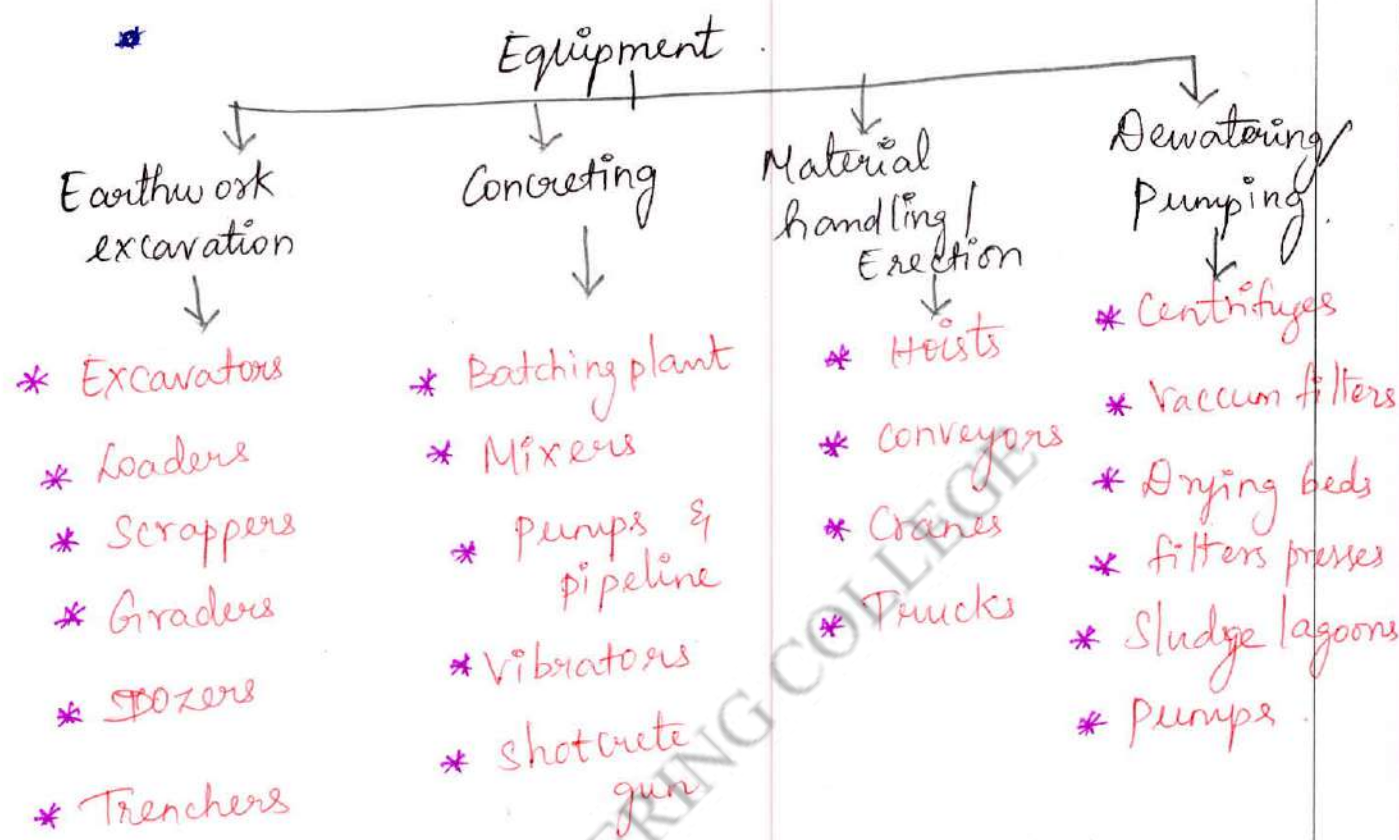 Equipment
Earthwork
excavation
* Excavators
* Loaders
* Scrappers
* Graders
* Dozers
* Trenchers
Concreting
* Batching plant
* Mixers
* Pumps &
pipeline
* Vibrators
* shotcrete
gun
Material
handling /
Erection
* Hoists
* conveyors
* Cranes
* Trucks
Dewatering/
Pumping.
* Centrifuges
* Vaccum filters
* Drying beds
* filters presses
* Sludge lagoons
* Pumps.
ERING COLLEGE